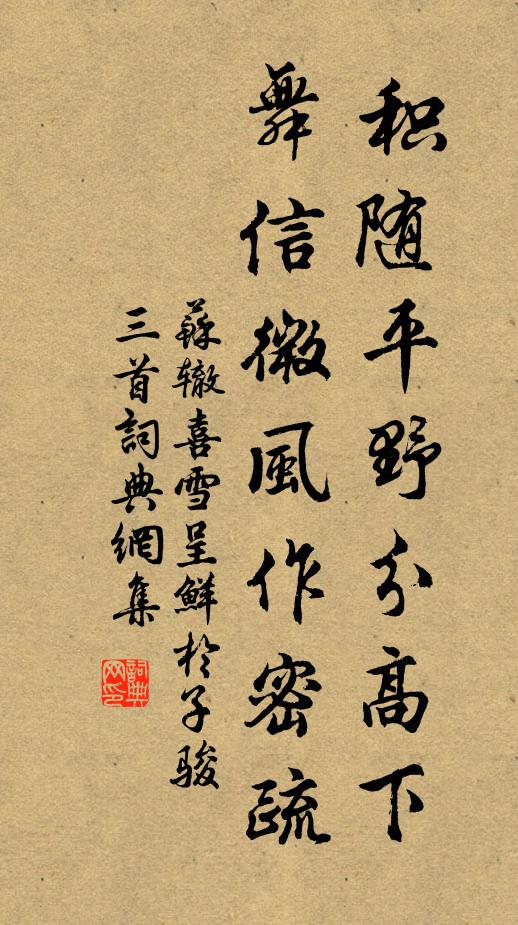 积随平野分高下
舞信微风作密疏
苏辙喜雪呈鲜於子骏
三首词典网集
词典网印